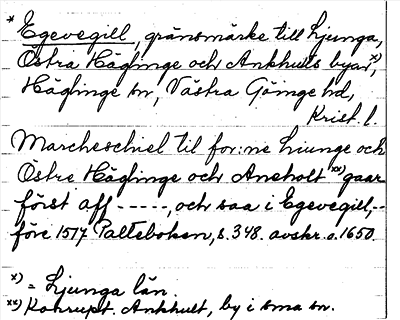 * Egevegill, gränsmärke till Ljunga,
Östra Häglinge och Ankhults byar x),
Häglinge sn, Västra Göinge hd,
Krist. l.
Marcheschiel til for:ne Liunge och
Östre Häglinge och Aneholt xx) gaar
först aff -----, och saa i Egevegill,--
före 1517 Palteboken, s. 348. avskr. o. 1650.
x) = Ljunga län.
xx) Korrupt. Ankhult, by i sma sn.